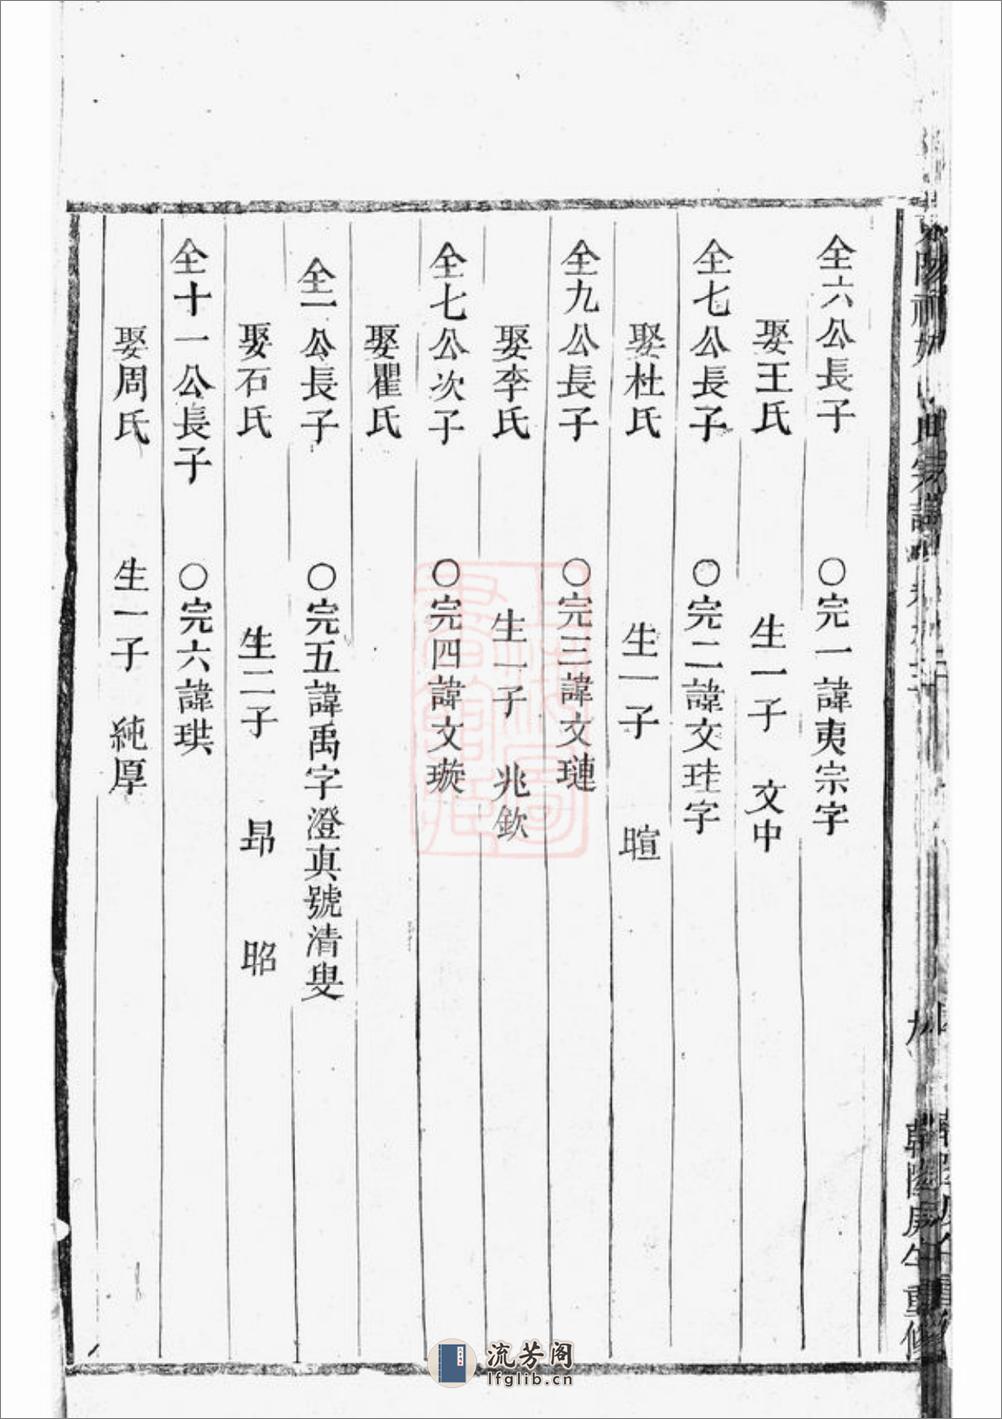 全六公長子　○完一諱夷宗字
娶王氏　生一子　文中
全七公長子　○完二諱文珪字
娶杜氏　生一子　暄
全九公長子　○完三諱文璉
娶李氏　生一子　兆欽
全七公次子　○完四諱文璇
娶瞿氏
全一公長子　○完五諱禹字澄真號清叟
娶石氏　生二子　昻　昭
全十一公長子　○完六諱珙
娶周氏　生一子　純厚
流芳阁
lfglib.cn